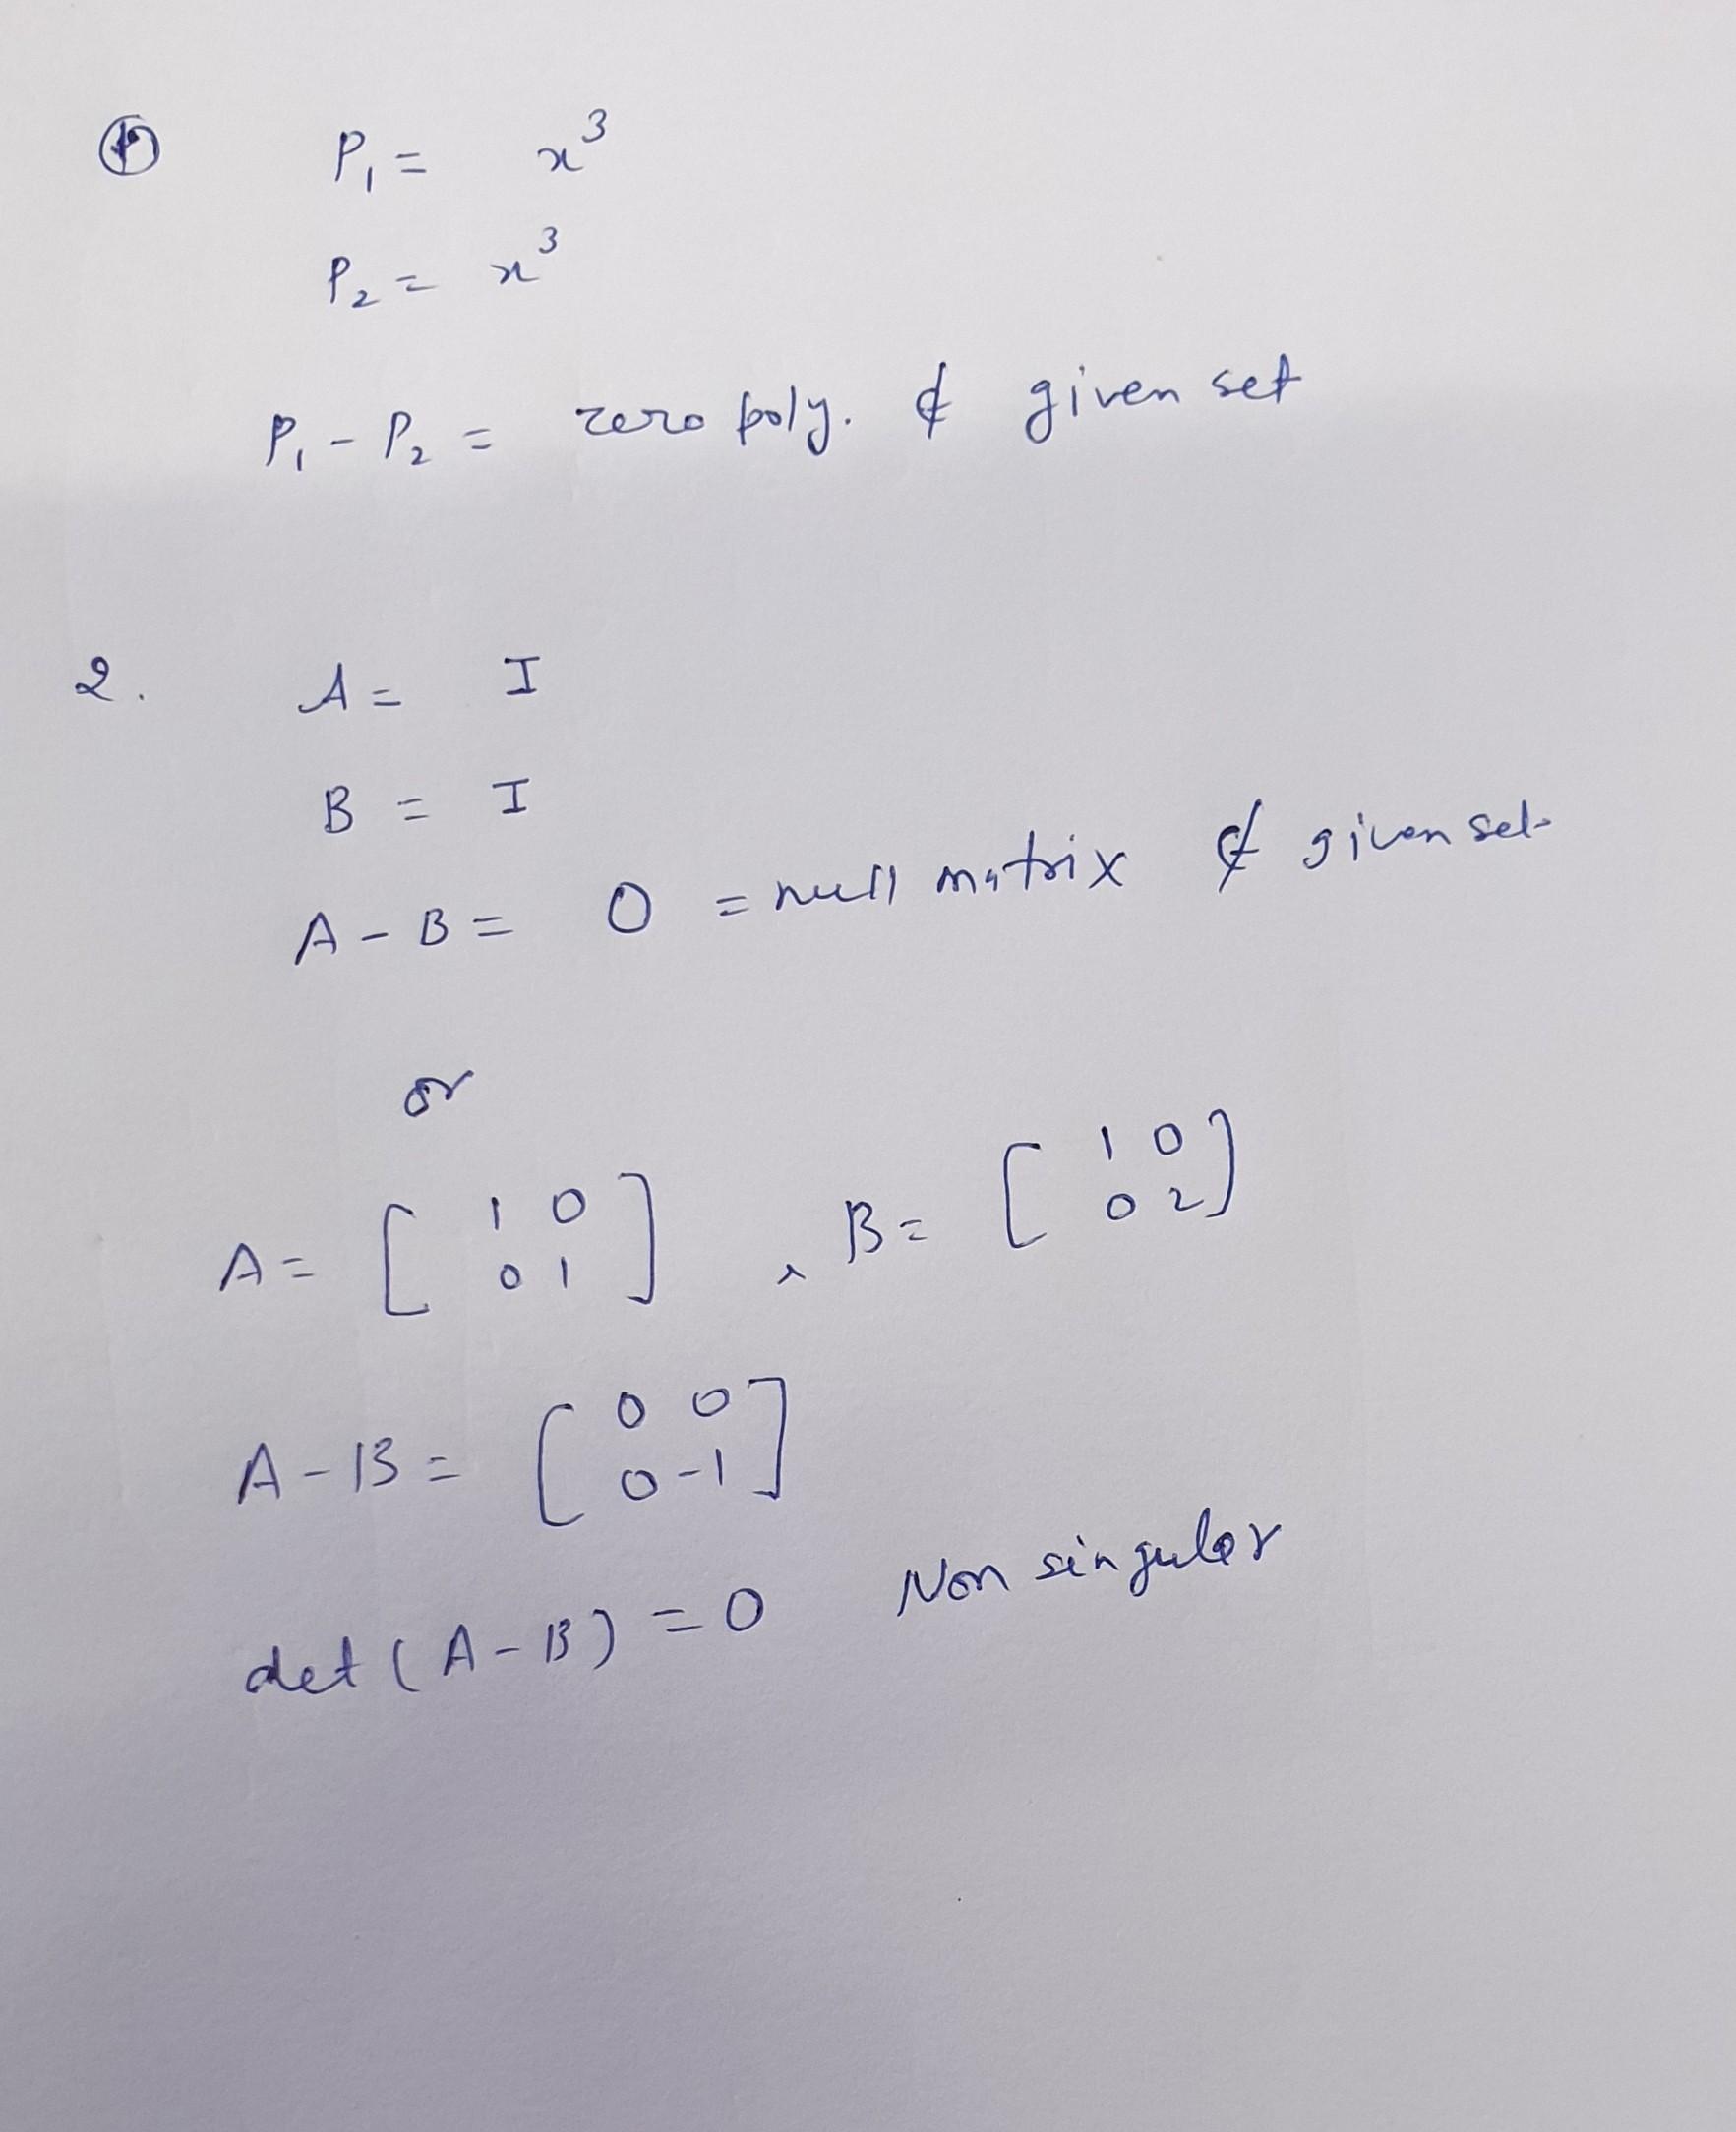 ① P₁ = x³
P₂ = x³
P₁ - P₂ = zero poly. ∉ given set
2. A = I
B = I
A - B = O = null matrix ∉ given set
or
A = [ 1 0
0 1 ] , B = [ 1 0
0 2 ]
A - B = [ 0 0
0 -1 ]
det (A - B) = 0 Non singular